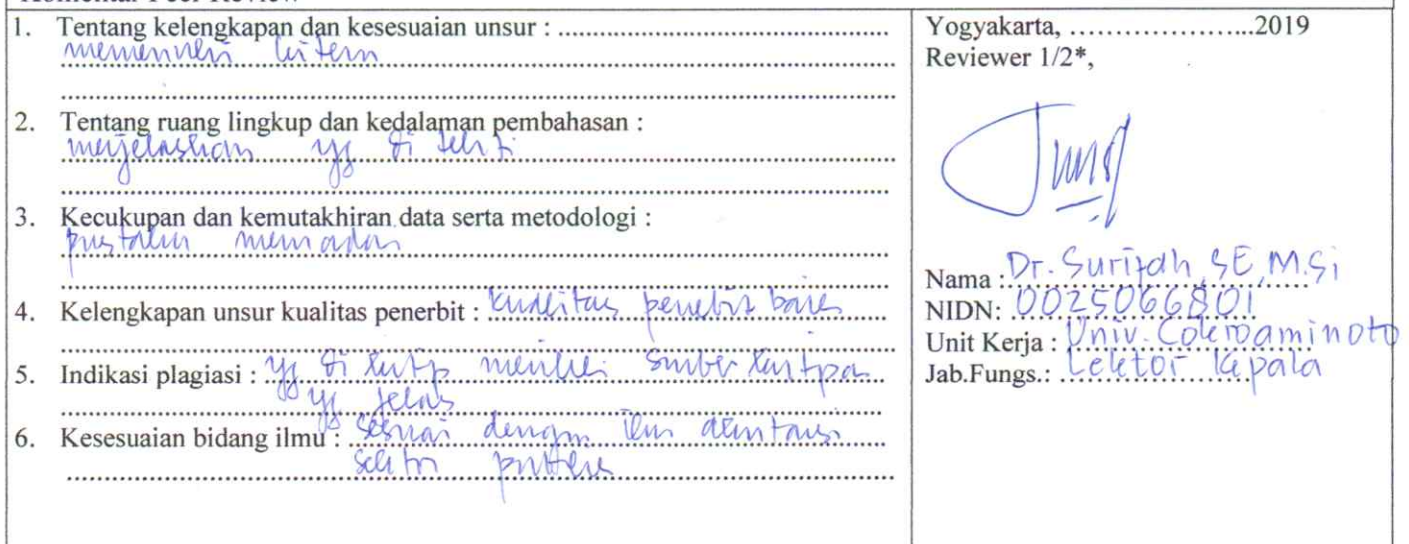 Komentar Peer Review
1. Tentang kelengkapan dan kesesuaian unsur :
memenuhi kriteria
2. Tentang ruang lingkup dan kedalaman pembahasan :
menjelaskan yg di teliti
3. Kecukupan dan kemutakhiran data serta metodologi :
pustaka memadai
4. Kelengkapan unsur kualitas penerbit : kualitas penerbit baik
5. Indikasi plagiasi : yg di kutip memiliki sumber kutipan
yg jelas
6. Kesesuaian bidang ilmu : sesuai dengan ilmu akuntansi
sektor publik
Yogyakarta, …………………...2019
Reviewer 1/2*,
Nama : Dr. Surifah, SE, M.Si
NIDN: 0025066801
Unit Kerja : Univ. Cokroaminoto
Jab.Fungs.: Lektor Kepala